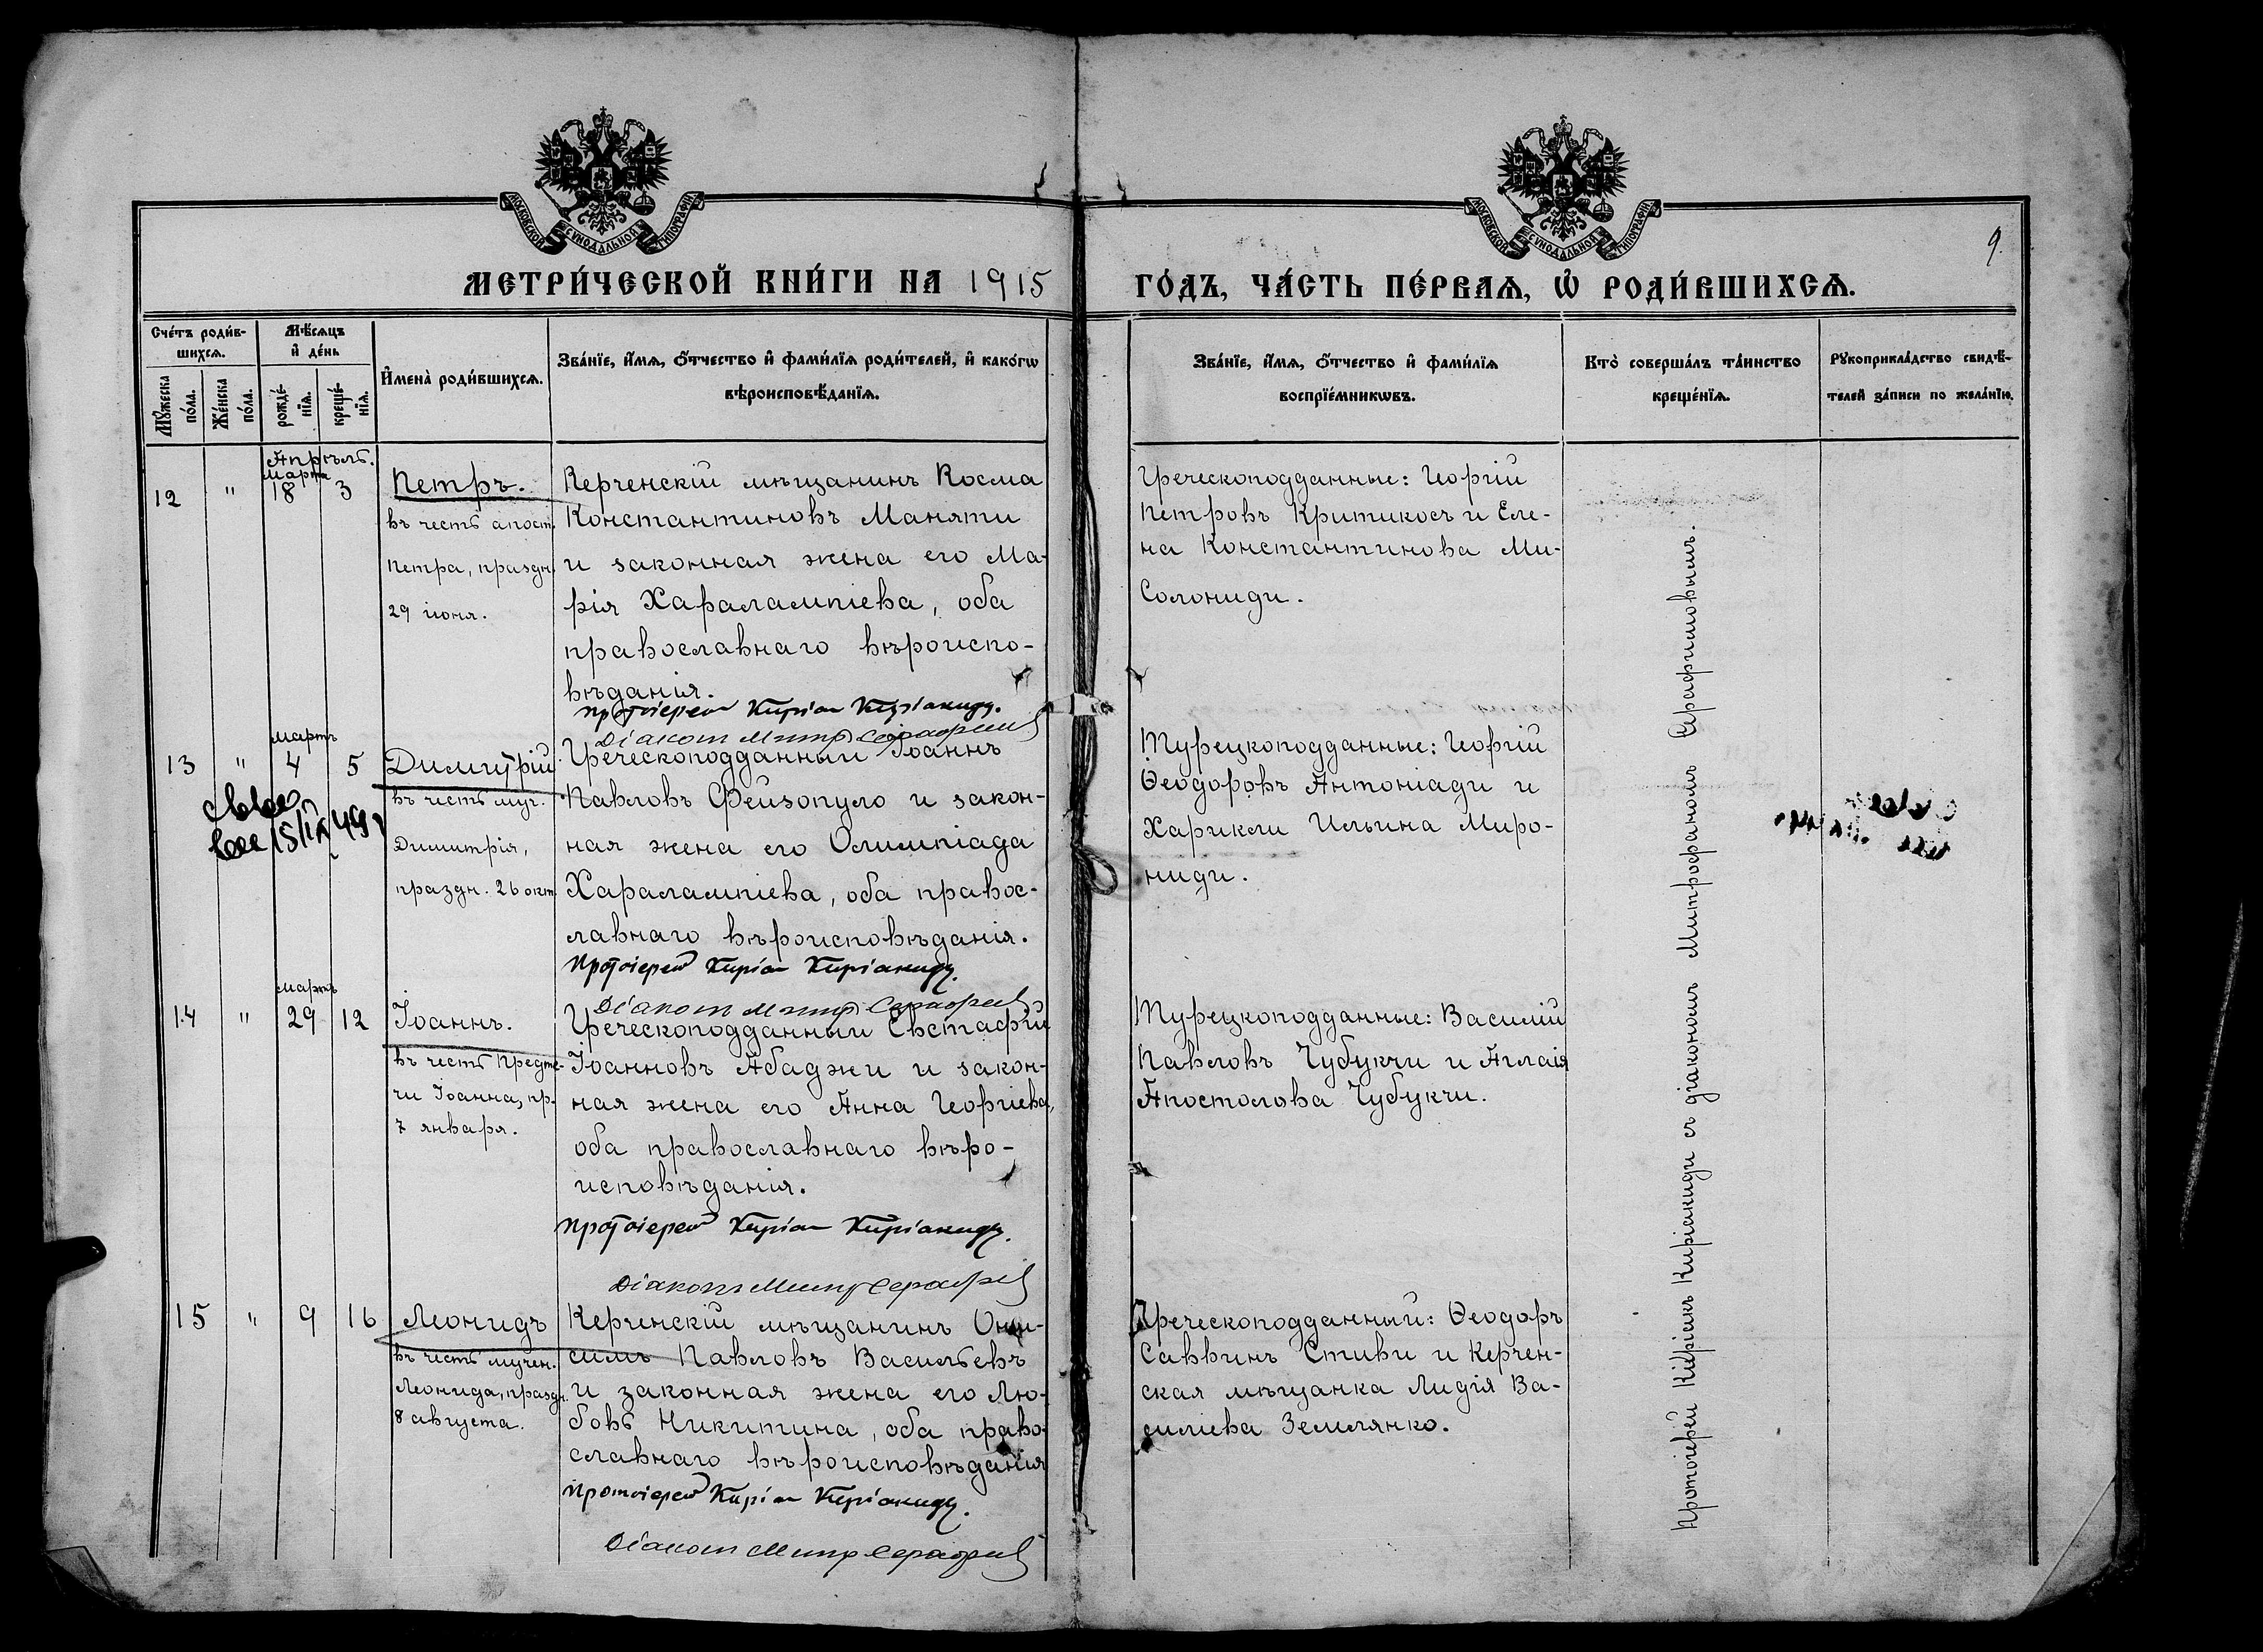 МОСКОВСКОЙ СѴНОДАЛЬНОЙ ТИПОГРАФІИ
МОСКОВСКОЙ СѴНОДАЛЬНОЙ ТИПОГРАФІИ
9.
МЕТРИ́ЧЕСКОЙ КНИ́ГИ НА 1915
ГО́ДЪ, ЧА́СТЬ ПЕ́РВАѦ, Ѡ҆ РОДИ́ВШИХСѦ.
Сче́тъ роди́в-
шихсѧ.
Мѣ́сѧцъ
и҆ де́нь
Мꙋ́жеска
по́ла.
Же́нска
по́ла.
рожде́-
нїѧ.
креще́-
нїѧ.
И҆мена̀ роди́вшихсѧ.
Зва́нїе, и҆́мѧ, ѻ҆́тчество и҆ фами́лїѧ роди́телей, и҆ како́гѡ
вѣроисповѣ́данїѧ.
Зва́нїе, и҆́мѧ, ѻ҆́тчество и҆ фами́лїѧ
воспрїе́мникѡвъ.
Кто̀ соверша́лъ та́инство
креще́нїѧ.
Рꙋкоприкла́дство свидѣ́-
телей за́писи по жела́нїю.
Апрѣль.
марта
12 " 18 3
Петръ.
въ честь апост.
Петра, праздн.
29 іюня.
Керченскій мѣщанинъ Косма
Константиновъ Маняти
и законная жена его Ма-
рія Харалампіева, оба
православнаго вѣроиспо-
вѣданія.
Протоіерей Киріак Киріакиди.
Діакон Митр Серафим
Греческоподданные: Георгій
Петровъ Критикосъ и Еле-
на Константинова Ми-
солониди.
мартъ
13 " 4 5
Димитрій
въ честь муч.
Димитрія,
праздн. 26 окт.
Греческоподданный Іоаннъ
Павловъ Фейзопуло и закон-
ная жена его Олимпіада
Харалампіева, оба правос-
лавнаго вѣроисповѣданія.
Протоіерей Киріак Киріакиди.
Діакон Митр Серафим
Турецкоподданные: Георгій
Ѳеодоровъ Антоніади и
Харикли Ильина Миро-
ниди.
мартъ
14 " 29 12
Іоаннъ.
въ честь Предте-
чи Іоанна, пр.
7 января.
Греческоподданный Евстафій
Іоанновъ Абаджи и закон-
ная жена его Анна Георгіева,
оба православнаго вѣро-
исповѣданія.
Протоіерей Киріак Киріакиди.
Діаконъ Митр Серафим
Турецкоподданные: Василій
Павловъ Чубукчи и Аглаія
Апостолова Чубукчи.
15 " 9 16
Леонидъ
въ честь мучен.
Леонида, праздн.
8 августа.
Керченскій мѣщанинъ Они-
симъ Павловъ Васильевъ
и законная жена его Лю-
бовь Никитина, оба право-
славнаго вѣроисповѣданія
Протоіерей Киріак Киріакиди.
Діакон Митр Серафим
Греческоподданный: Ѳеодоръ
Саввинъ Стиви и Керчен-
ская мѣщанка Лидія Ва-
силіева Землянко.
Протоіерей Киріакъ Киріакиди съ діакономъ Митрофаномъ Серафимовымъ.